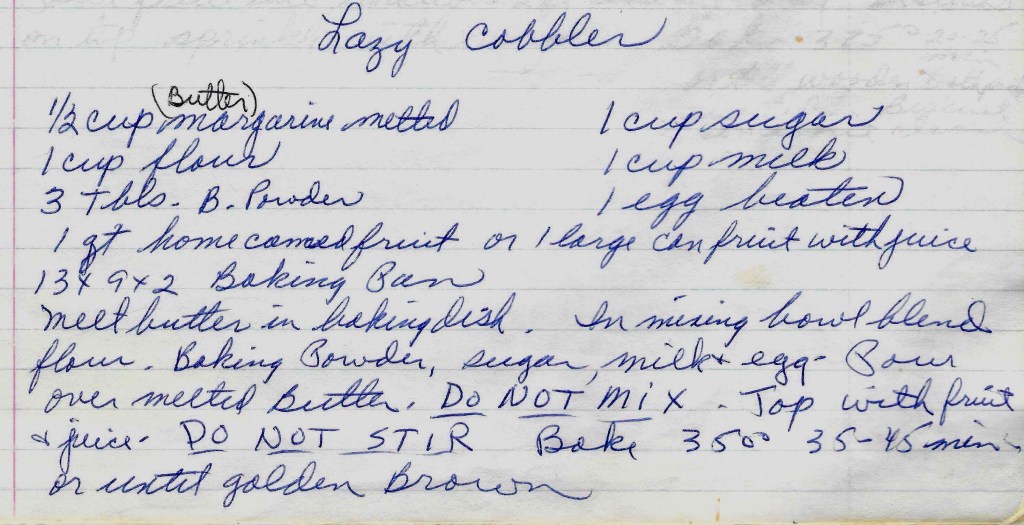 Lazy Cobbler
(Butter)
1/2 cup margarine melted 1 cup sugar
1 cup flour 1 cup milk
3 Tbls. B. Powder 1 egg beaten
1 qt home canned fruit or 1 large can fruit with juice
13 x 9 x 2 Baking Pan
Melt butter in baking dish. In mixing bowl blend
flour. Baking Powder, sugar, milk & egg - Pour
over melted Butter. DO NOT MIX - Top with fruit
& juice - DO NOT STIR Bake 350° 35-45 min
or until golden Brown